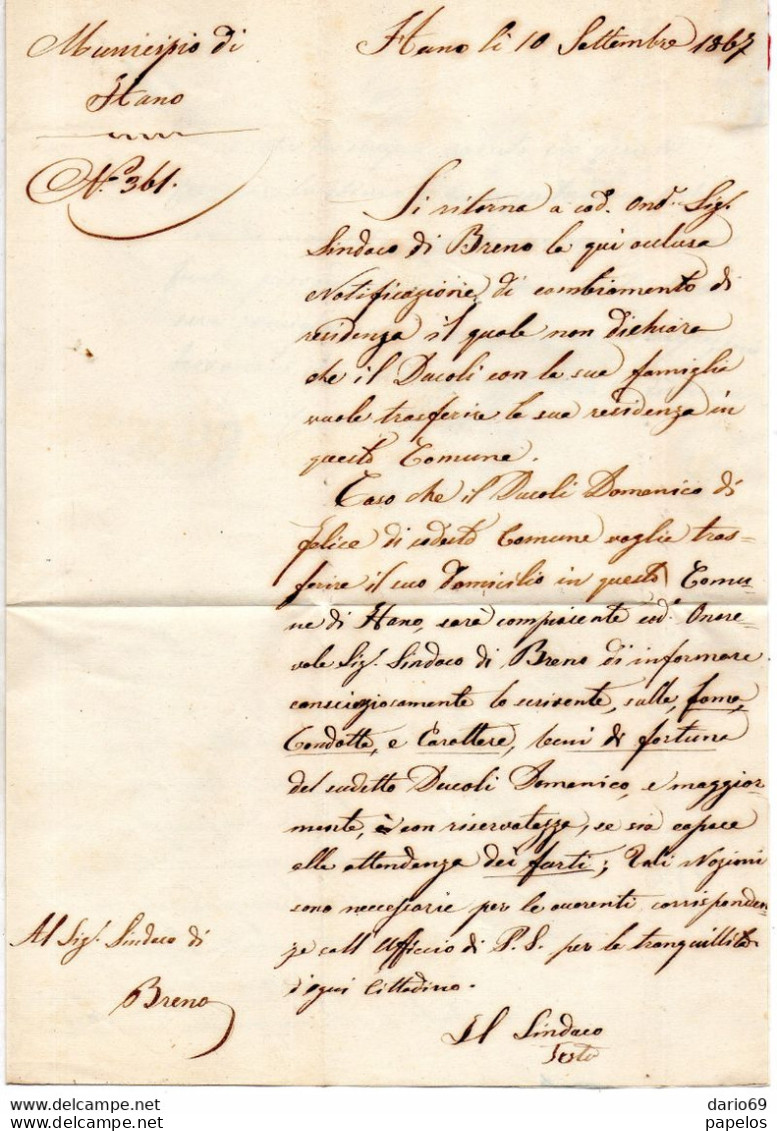 Municipio di
Hano
N.º 361.
Hano li 10 Settembre 1867
Si ritorna a cod. Ond. Sig.
Sindaco di Breno la qui acclusa
Notificazione di cambiamento di
residenza il quale non dichiara
che il Ducoli con la sua famiglia
vuole trasferire la sua residenza in
questo Comune.
Caso che il Ducoli Domenico di
felice di codesto Comune voglia tras=
ferire il suo domicilio in questo Comu-
ne di Hano, sarà compiacente cod. Onore-
vole Sig. Sindaco di Breno di informare
consciezosamente lo scrivente, sulla fama,
Condotta, e Carattere, beni di fortuna
del sudetto Ducoli Domenico, e maggior-
mente, e con riservatezza, se sia capace
alla attendenza dei furti; Tali Nozioni
sono necessarie per le correnti corrisponden-
ze coll'Ufficio di P. S. per la tranquillità
d'ogni Cittadino.
Al Sig. Sindaco di
Breno
Il Sindaco
dario69
dario69
papelos
papelos